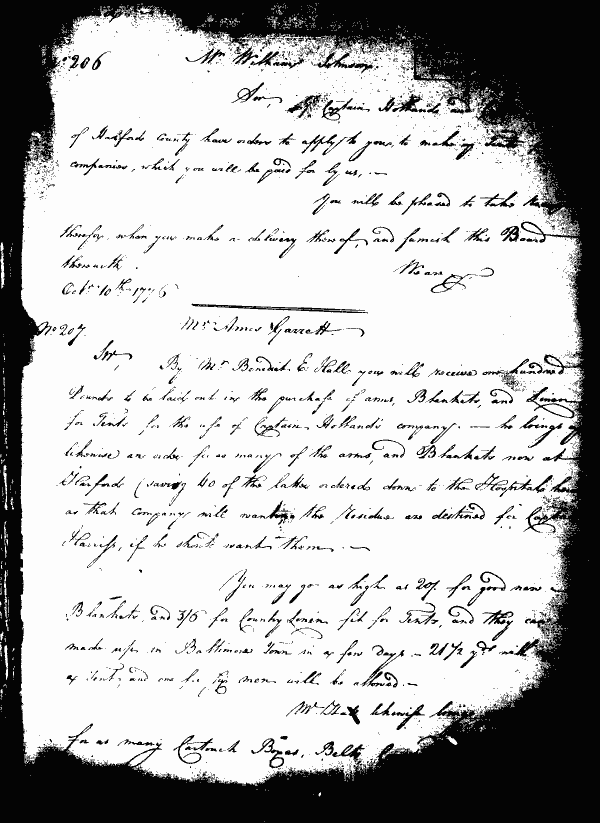 No 206 Mr. William Johnson.
Sir, Captain Hollands and
of Harford County have orders to apply to you, to make up Tents
companies, which you will be paid for by us, —
You will be pleased to take
therefor, when you make a delivery thereof, and furnish this Board
therewith.
We are &c
Octr. 10th 1776
No 207. Mr. Amos Garrett.
Sir, By Mr. Benedict E. Hall you will receive one hundred
Pounds to be laid out in the purchase of arms, Blankets, and Linen
for Tents for the use of Captain Holland's company. — he brings
likewise an order for as many of the arms, and Blankets now at
Harford (saving 40 of the latter ordered down to the Hospital here
as that company will want, the residue are destined for Captn
if he should want them. —
You may go as high as 20/. for good new
Blankets, and 3/6 for Country Linen fit for Tents, and they can
made up in Baltimore Town in a few days — 21 1/2 yds will
a Tent, and one for six men will be allowed. —
Mr. Hall likewise brings
for as many Cartouch Boxes, Belts